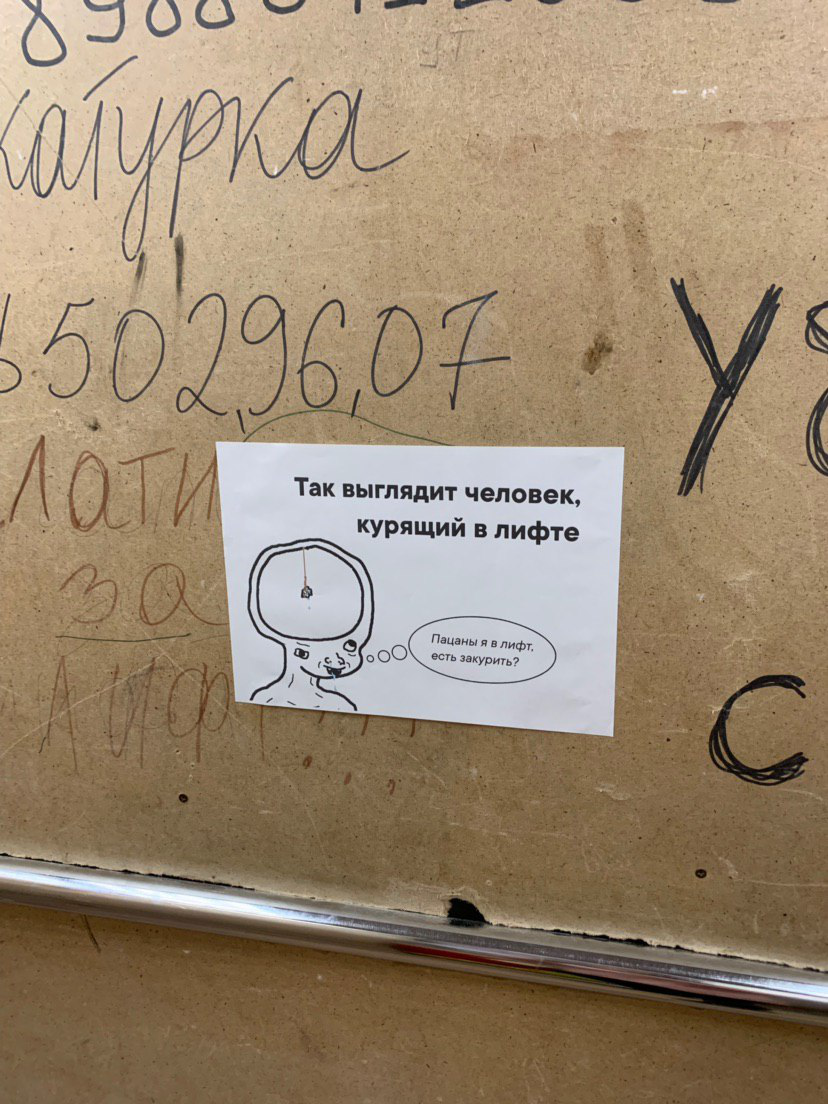 катурка
5029,6,07
Лати
за
Так выглядит человек,
курящий в лифте
Пацаны я в лифт,
есть закурить?
У
с